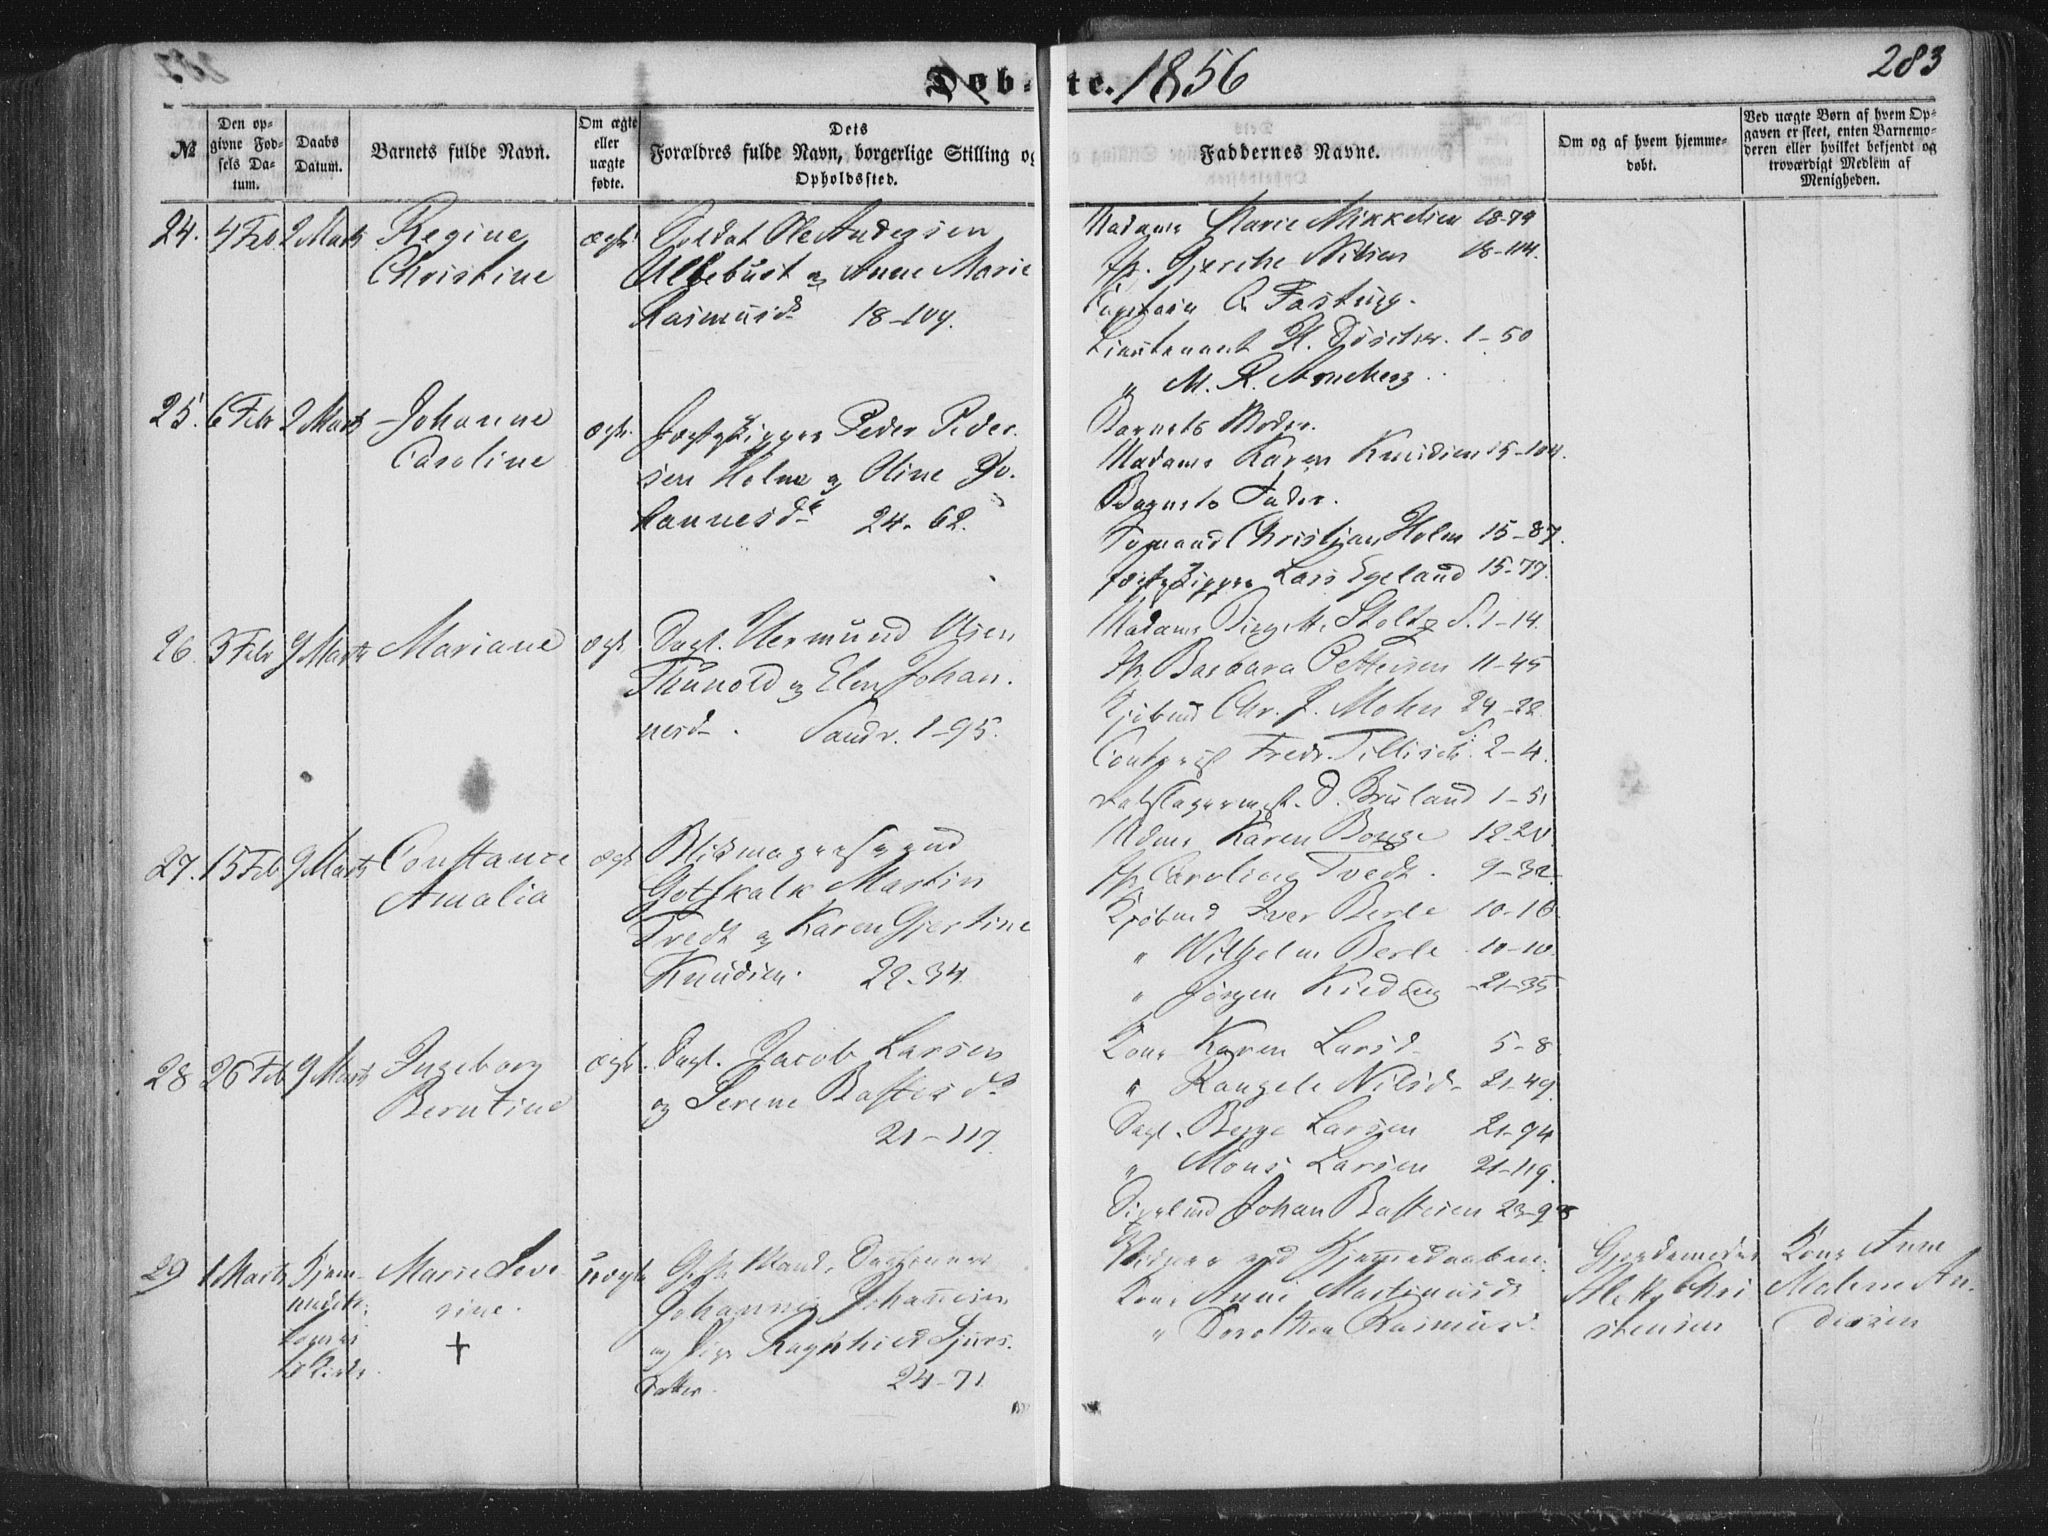 Døbte. 1856
283
№
Den opgivne Fødsels Datum.
Daabs Datum.
Barnets fulde Navn.
Om ægte eller uægte fødte.
Dets Forældres fulde Navn, borgerlige Stilling og Opholdssted.
Faddernes Navne.
Om og af hvem hjemmedøbt.
Ved uægte Børn af hvem Opgaven er skeet, enten Barnemoderen eller hvilket bekjendt og troværdigt Medlem af Menigheden.
24. 4 Feb 2 Marts Regine
Christine
ægte
Soldat Ole Andersen
Ullebust og Anne Marie
Rasmusd. 18-104.
Madame Marie Mikkelsen 18-79
Gjertke Nilsen 18-104.
Captain Fasting.
Lieutenant H. 1-50
" M. R.
25. 6 Febr 2 Marts Johanne
Caroline
ægte.
Jægtskipper Peder Peder
sen Holm og Oline Jo
hannesd. 24-62.
Barnets Moder.
Madame Karen Knudsen 15-104.
Barnets Fader.
Christian Holm 15-87.
Jægtskipper Lars Egeland 15-77.
26. 3 Febr 9 Marts Mariane
ægte
Dagl. Hermund Olsen
Thunold og Elen Johan.
nesd. Sandv. 1-95.
Madame Birgitte Stoltz S. 1-14.
Jfr Barbara Pettersen 11-45
Kjøbmd Chr. J. Mohn 24-22
Fredr. Tillisch S. 2-4.
D. Bruland 1-51
27. 15 Feb 9 Marts Constance
Amalia
ægte
Blikmagersvend
Gotskalk Martin
Tvedt og Karen Gjertine
Knudsen. 22-34.
Mdme Karen 12-20
Jfr Caroline Tvedt. 9-32
Kjøbmd Iver Berle 10-10
" Wilhelm Berle 10-10.
" Jørgen 21-35
28 26 Feb 9 Marts Ingeborg
Berntine
ægte.
Dagl. Jacob Larsen
og Serene Bastesd.
21-117.
Kone Karen Larsd. 5-8
" Rangele Nilsd. 21-49.
Dagl. Berge Larsen 21-94
" Mons Larsen 21-119.
Johan Bastesen 23-98
29 1 Marts Hjem
Marie Seve
rine.
+
uægte
Gift Mand,
Johannes Johannesen
og Pige Ragnhild Sjurs
datter. 24-71.
Vidner ved Hjemmedaaben:
Kone Anne Martinusd.
" Dorothea Rasmusd.
Gjordemoder
Chri
stensen
Kone Anne
Malene An
dersen